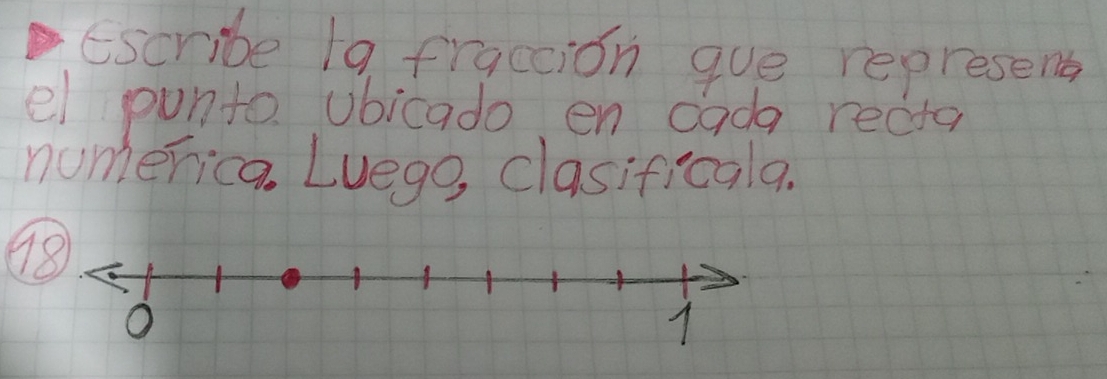 Escribe la fracción que representa
el punto ubicado en cada recta
numérica. Luego, clasifícala.
18
0 1